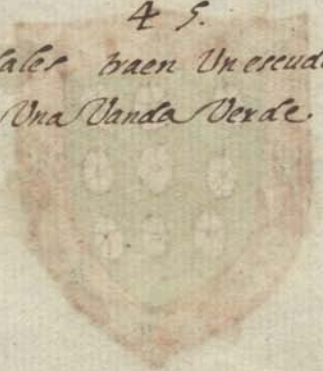 45.
ales traen Un escud
Una Vanda Verde.